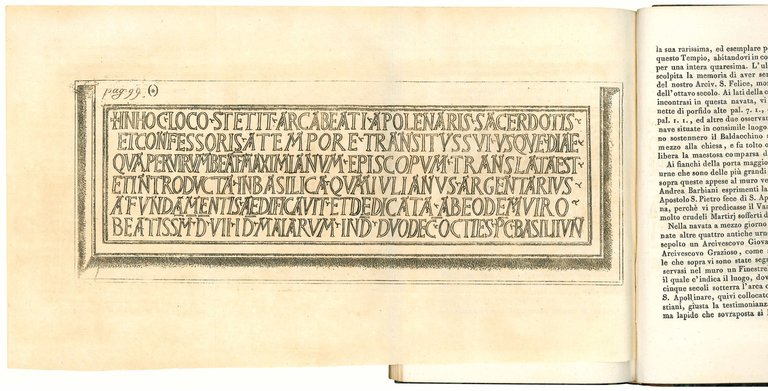 pag. 99.
+ IN HOC·LOCO·STETIT·ARCA BEATI·APOLENARIS·SACERDOTIS
ET CONFESSORIS A TEMPORE·TRANSITVS SVI·VSQVE·DIAE
QVA PERVIRVM BEAT·MAXIMIANVM·EPISCOPVM·TRANSLATA EST
ET INTRODVCTA IN BASILICA·QVAM IVLIANVS·ARGENTARIVS
A FVNDAMENTIS AEDIFICAVIT·ET DEDICATA·AB EODEM VIRO
BEATISSM·D·VII·ID·MAIARVM·IND·DVODEC·OCTIES·P̅C̅·BASILII IVN
la sua rarissima, ed esemplare p
questo Tempio, abitandovi in co
per una intera quaresima. L'ul
scolpita la memoria di aver se
del nostro Arciv. S. Felice, mo
dell'ottavo secolo. Ai lati della c
incontrasi in questa navata, vi
nette di porfido alte pal. 7. 1.,
pal. 1. 1., ed altre due osservan
nave situate in consimile luogo.
no sostennero il Baldacchino s
mezzo alla chiesa, e fu tolto o
libera la maestosa comparsa d
Ai fianchi della porta maggio
urne che sono delle più grandi
sopra queste appese al muro ve
Andrea Barbiani esprimenti la
Apostolo S. Pietro fece di S. Ap
na, perchè vi predicasse il Van
molto crudeli Martirj sofferti d
Nella navata a mezzo giorno
nate altre quattro antiche urne
sepolto un Arcivescovo Giova
Arcivescovo Grazioso, come
le che sopra vi sono state segn
servasi nel muro un Finestre
il quale c'indica il luogo, dov
cinque secoli sotterra l'arca d
S. Apollinare, quivi collocato
stiani, giusta la testimonianza
ma lapide che sovraposta si l